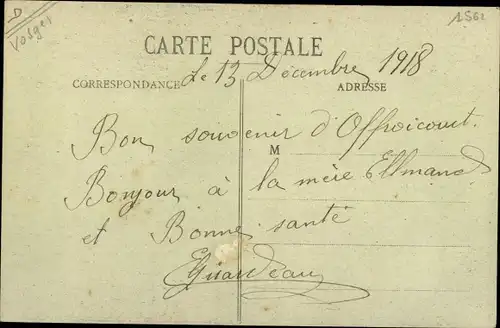 D
Vosges
1562
CARTE POSTALE
Le 13 Décembre 1918
CORRESPONDANCE
ADRESSE
Bon souvenir d'Offroicourt.
M
Bonjour à la mère
et Bonne santé